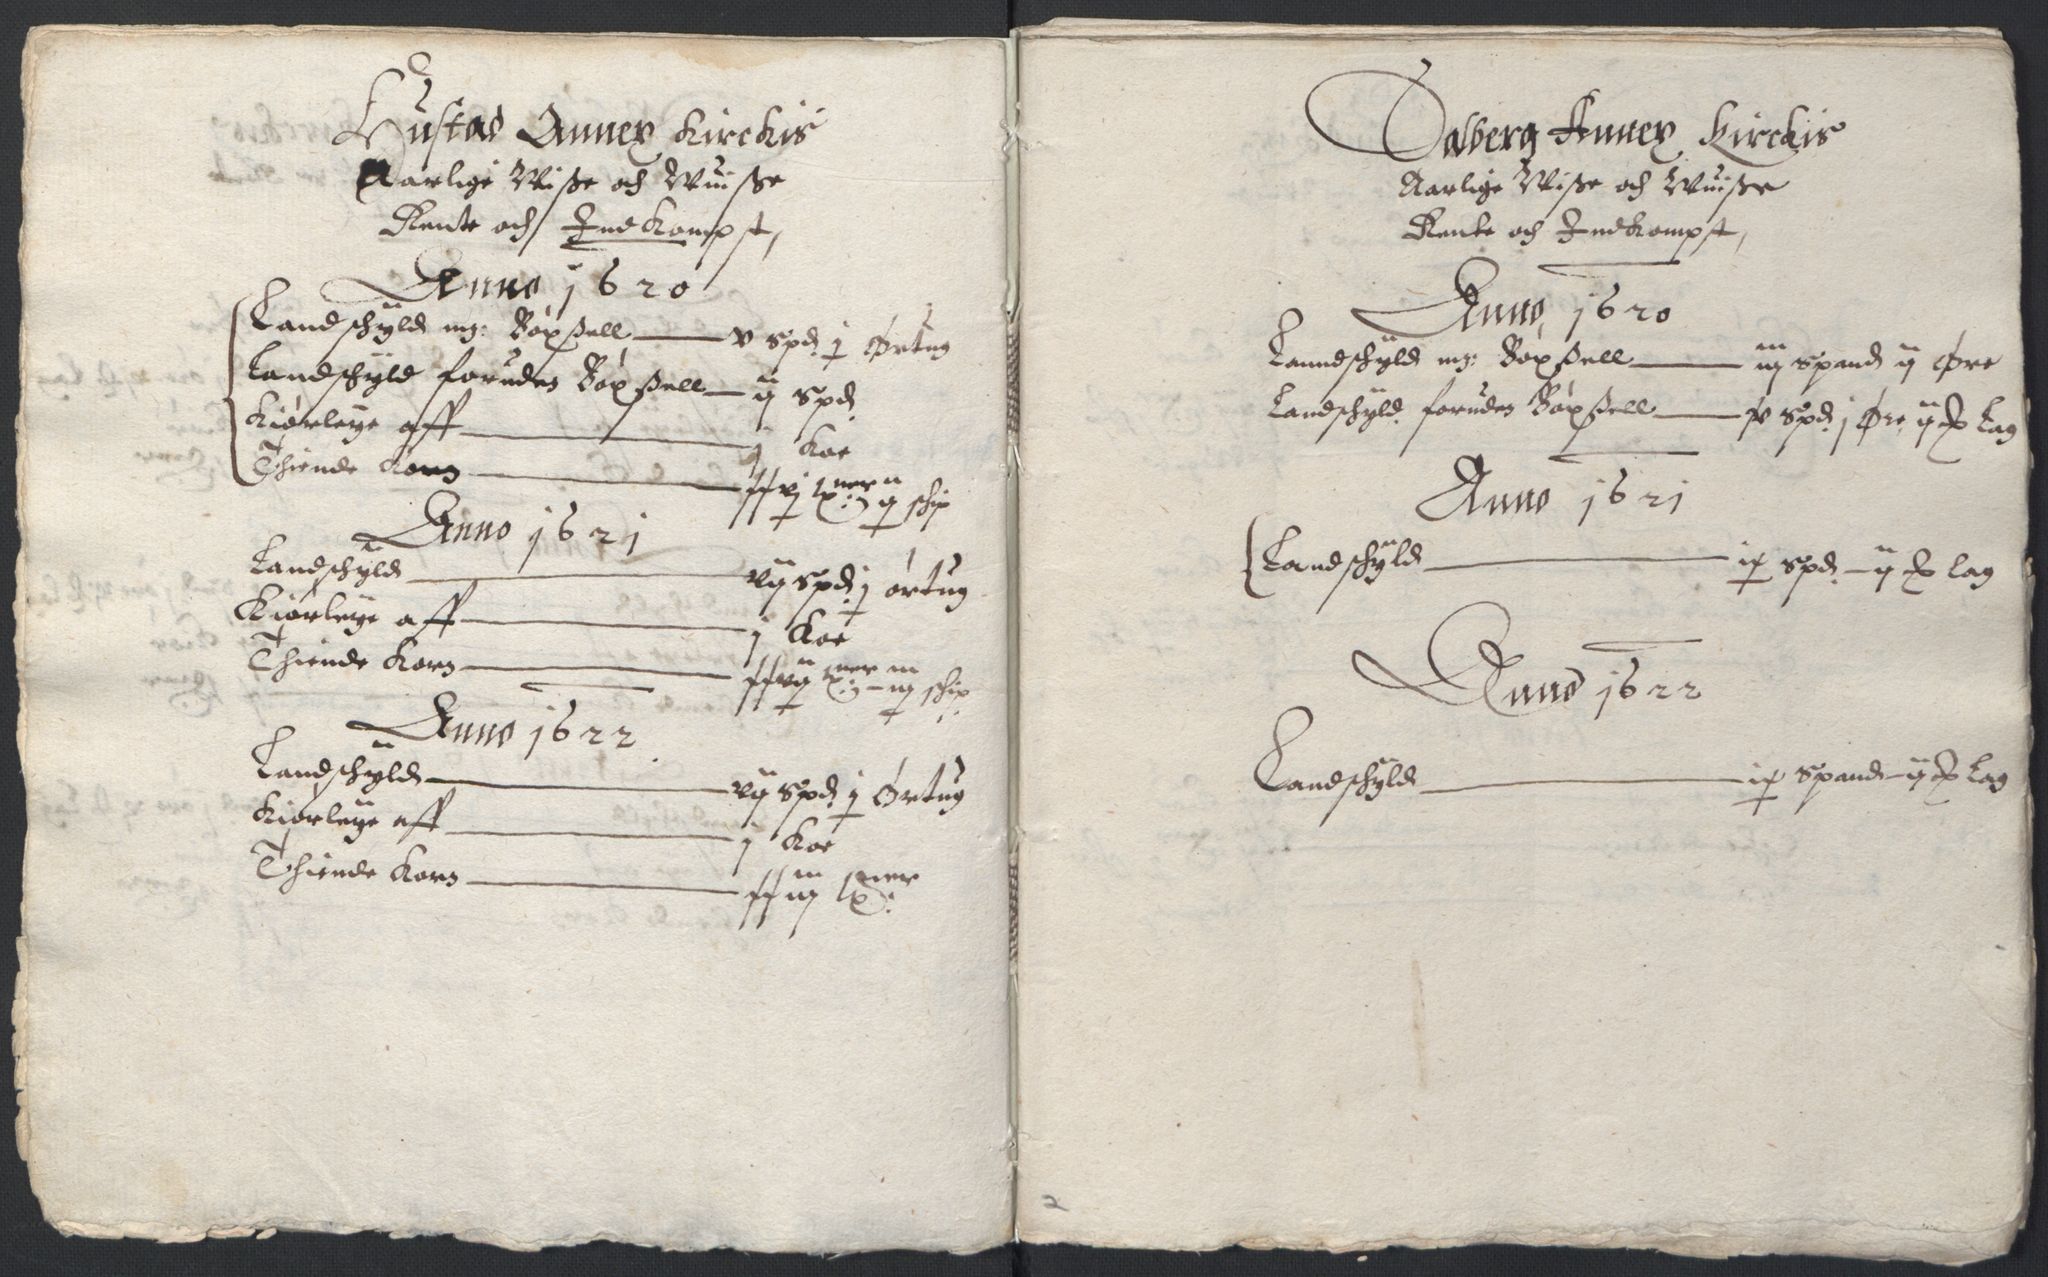 Bustad Annex Kirckis
Aarlige Wisse och Wuisse
Rente och Indkompst,
Anno 1620
Landschyld mz: Böxsell — v Spd: j Ørtug
Landschyld foruden Böxsell — ij Spd:
Kiörleye aff — j Koe
Thiende Korn — ij schip
Anno 1621
Landschyld — vij Spd: j ørtug
Kiörleye aff — j Koe
Thiende Korn — iij schip:
Anno 1622
Landschyld — vij Spd: j Ørtug
Kiörleye aff — j Koe
Thiende Korn
Ødlberg Annex Kirckis
Aarlige Wisse och Wuisse
Rente och Indkompst,
Anno 1620
Lanndschyld mz: Böxsell — iiij Spand ij Øre
Landschyld foruden Böxsell — Spd: j Øre, ij Lag
Anno 1621
Landschyld — ix Spd: — ij Lag
Anno 1622
Landschyld — ix Spand — ij Lag
2